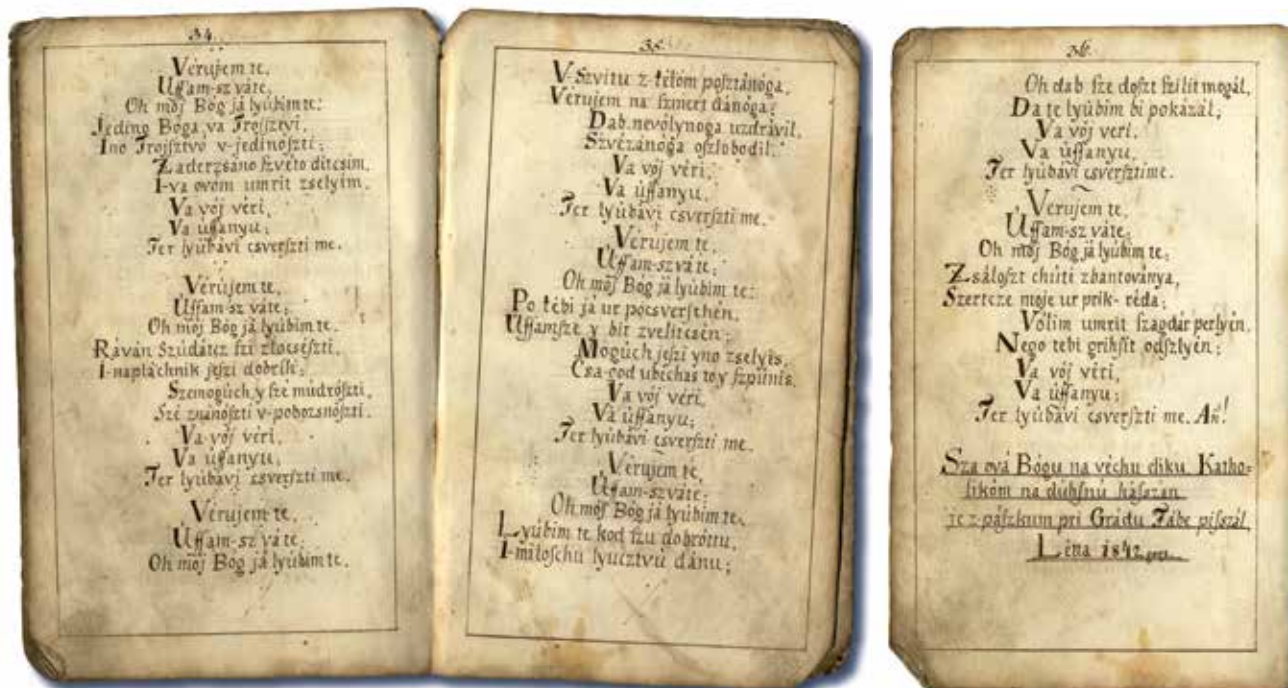 34.
Vérujem te,
Uffam-sz váte,
Oh mőj Bóg já lyúbim te:
Jedino Bóga, va Trojsztvi,
Ino Trojsztvó v-jedinószti;
Zaderzsáno szvéto ditcsim,
I-va ovom umrit zselyim.
Va vój véri,
Va úffanyu;
Ter lyúbávi csverszti me.
Vérújem te,
Uffam-sz váte;
Oh mőj Bóg já lyúbim te.
Ráván Szúdátcz szi zlocsészti,
I-napláchnik jeszi dobrih;
Szemogúch, y szé múdrószti,
Szé znánószti v-pobozsnószti.
Va vój véri,
Va úffanyu,
Ter lyúbávi csverszti me.
Vérujem te,
Uffam-sz váte,
Oh mőj Bóg já lyúbim te.
35.
V-Szvitu z-télom posztánóga,
Vérujem na szmert dánóga;
Dab nevólynoga uzdrávil,
Szvézánóga oszlobodil.
Va vój véri,
Va úffanyu,
Ter lyúbávi csverszti me.
Vérujem te,
Uffam-sz váte;
Oh mőj Bóg já lyúbim te:
Po tébi já ur pocsverschén,
Uffamsze y bit zvelitcsén;
Mogúch jeszi yno zselyis,
Csa-god ubéchas toy szpúnis.
Va vój véri,
Va úffanyu;
Ter lyúbávi csverszti me.
Vérujem te,
Uffam-sz váte;
Oh mőj Bóg já lyúbim te.
Lyúbim te kod szu dobróttu,
I-miloschu lyucztvú dánu;
36.
Oh dab sze doszt szilit mogál,
Da te lyúbim bi pokázál;
Va vój veri,
Va úffanyu,
Ter lyúbávi csverszti me.
Vérujem te,
Uffam-sz váte;
Oh mőj Bóg já lyúbim te;
Zsálószt chúti zbantoványa,
Szertcze moje ur prik-réda;
Vólim umrit szagdár perlyén,
Nego tebi grihsit odszlyén;
Va vój véri,
Va úffanyu;
Ter lyúbávi csverszti me. Añ!
Sza ová Bógu na véchu diku Katho=
likóm na dúhsnú hászan
je z-pászkum pri Grádu Fábe piszál,
Létta 1842